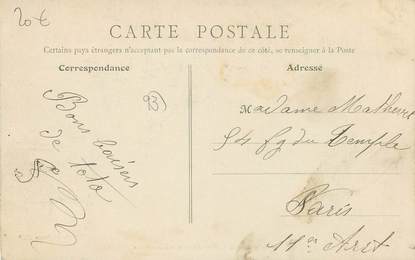 20€
CARTE POSTALE
Certains pays étrangers n'acceptant pas la correspondance de ce côté, se renseigner à la Poste
Correspondance
Bons baisers
de toto
93
Adressé
Madame
54 fg du Temple
Paris
11e Arrt